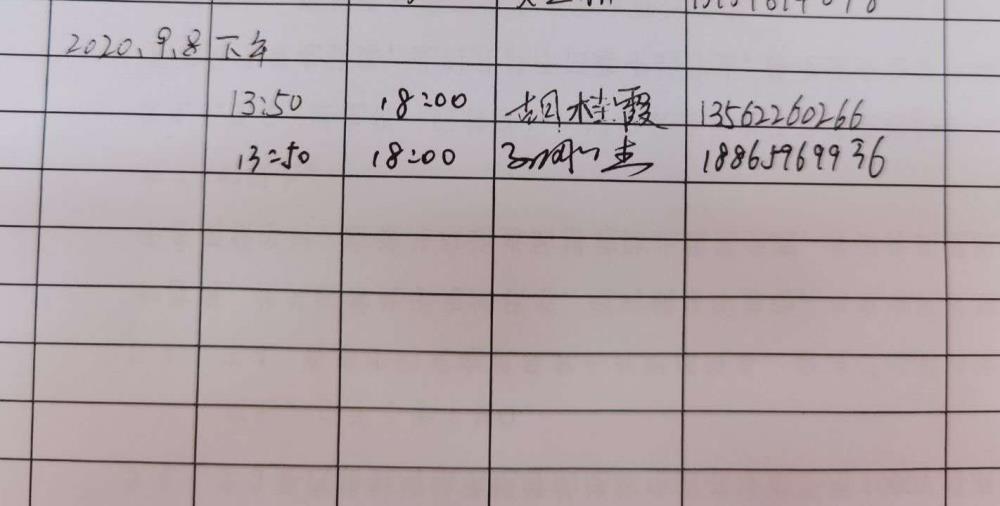 2020.9.8 下午
13:50 18:00 胡桂霞 13562260266
13:50 18:00 18865969936